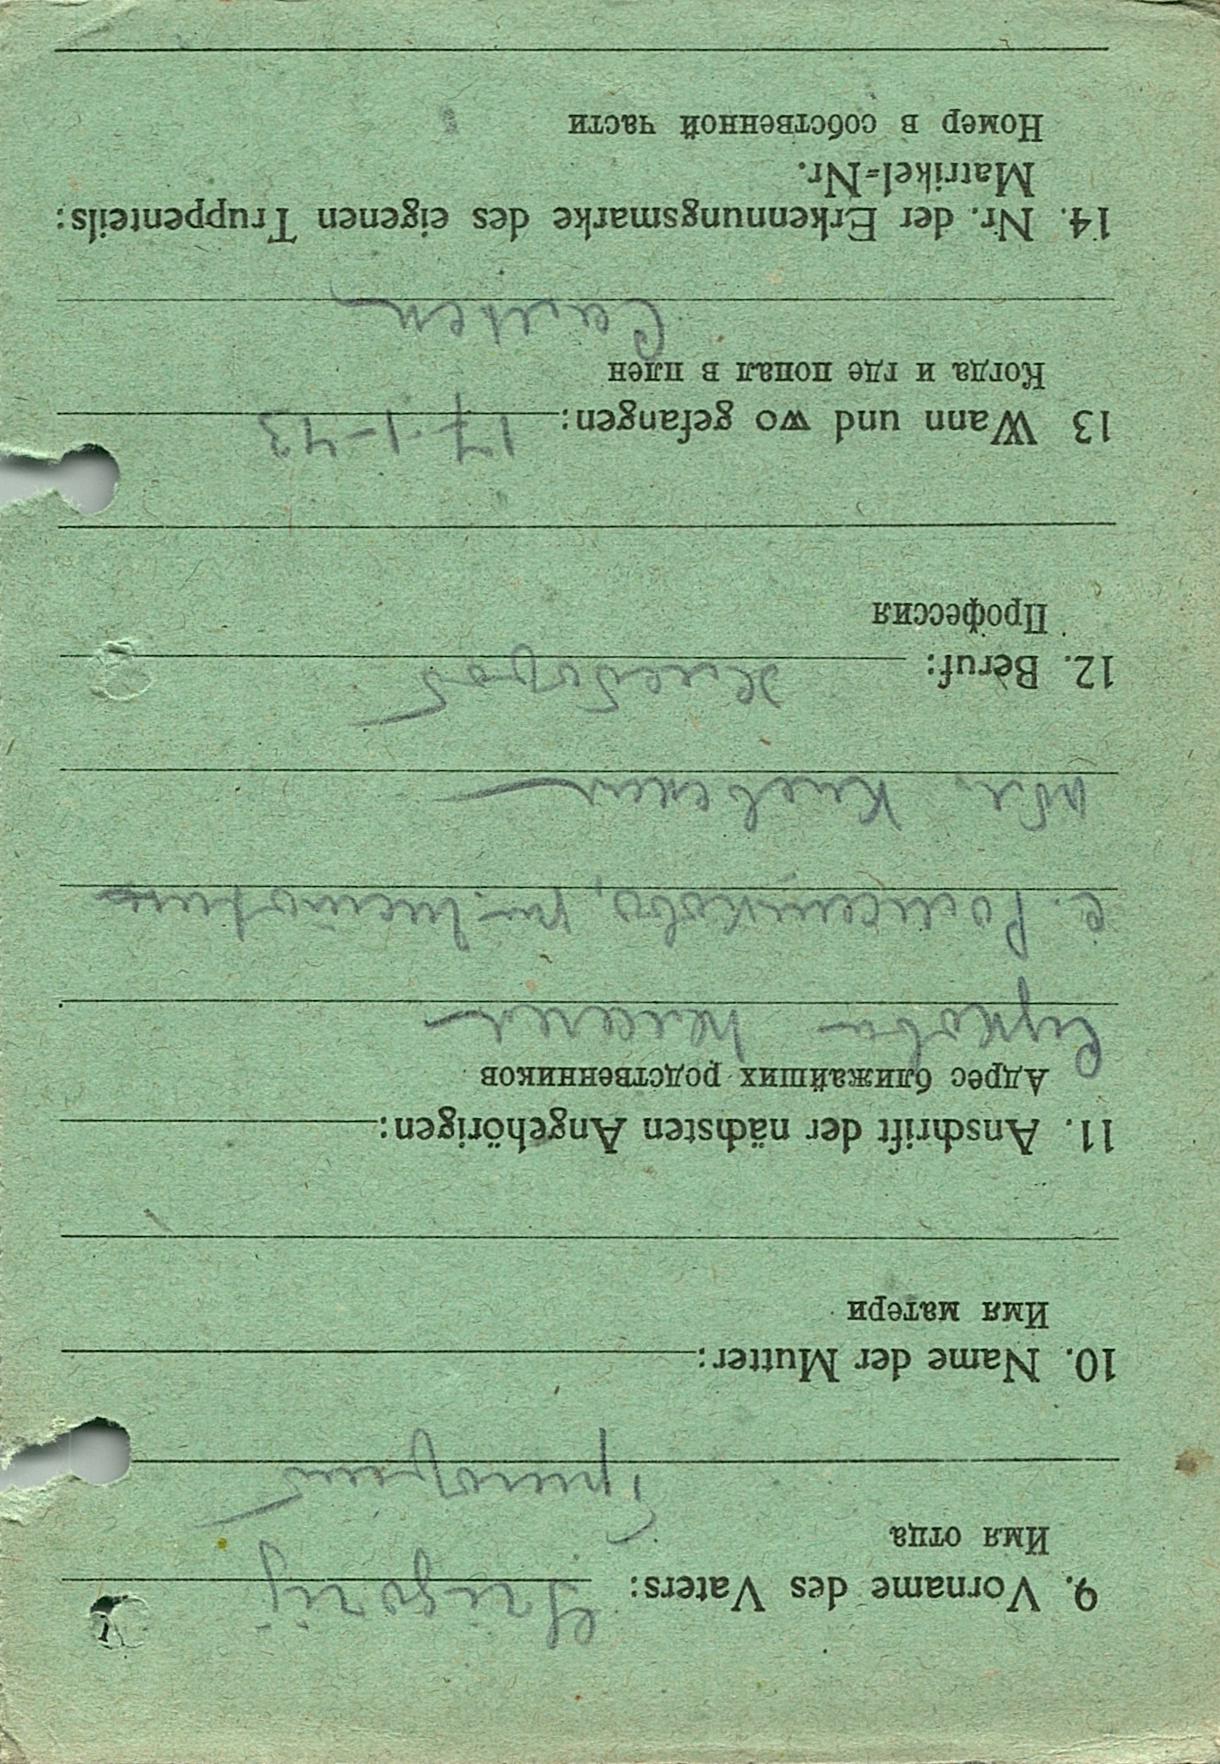 9. Vorname des Vaters: Grigorij
Имя отца
Григорий
10. Name der Mutter:
Имя матери
11. Anschrift der nächsten Angehörigen:
Адрес ближайших родственников
с.
обл. Киевская
12. Beruf: хлебороб
Профессия
13 Wann und wo gefangen: 17-1-43
Когда и где попал в плен
14. Nr. der Erkennungsmarke des eigenen Truppenteils:
Matrikel-Nr.
Номер в собственной части